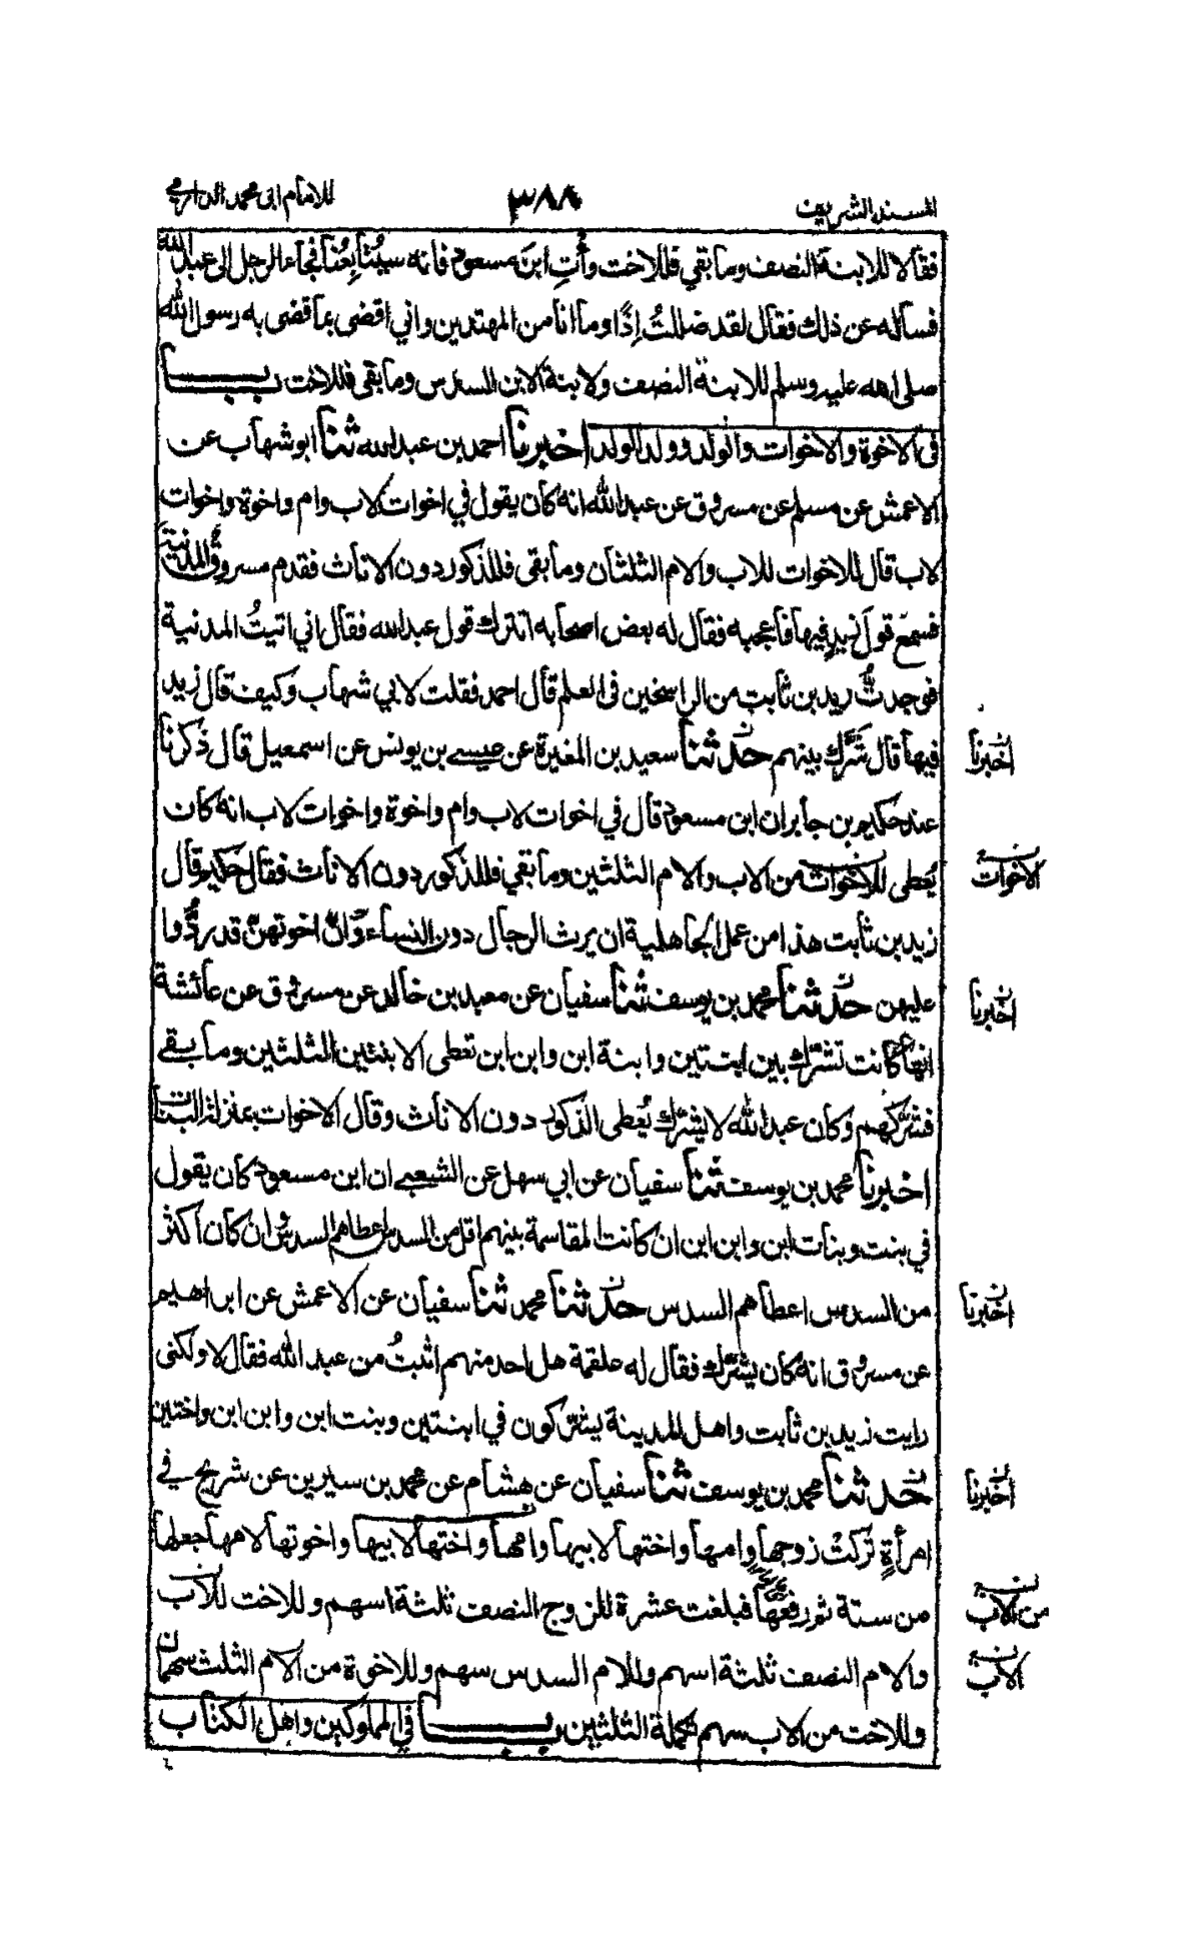 المسند الشريف ٣٨٨ للامام ابى محمد الدارمي
فقالا للابنة النصف وما بقي فللاخت وأتِ ابنَ مسعود فانه سيُتابِعُنا فجاء الرجل الى عبد الله
فسأله عن ذلك فقال لقد ضللتُ إذًا وما انا من المهتدين واني اقضى بما قضى به رسول الله
صلى الله عليه وسلم للابنة النصف ولابنة الابن السدس وما بقى فللاخت باب
فى الاخوة والاخوات والولد وولد الولد اخبرنا احمد بن عبد الله ثنا ابو شهاب عن
الاعمش عن مسلم عن مسروق عن عبد الله انه كان يقول في اخوات لاب وام واخوة واخوات
لاب قال للاخوات للاب والام الثلثان وما بقى فللذكور دون الاناث فقدم مسروقٌ المدنية
فسمع قول زيدٍ فيها فاعجبه فقال له بعض اصحابه اتترك قول عبد الله فقال اني اتيتُ المدنية
فوجدتُ زيد بن ثابت من الراسخين فى العلم قال احمد فقلت لابي شهاب وكيف قال زيد
فيها قال شَرَّك بينهم حدثنا سعيد بن المغيرة عن عيسى بن يونس عن اسمعيل قال ذكرنا
اخبرنا
عند حكيم بن جابر ان ابن مسعود قال في اخوات لاب وام واخوة واخوات لاب انه كان
يُعطى للاخوات من الاب والام الثلثين وما بقي فللذكور دون الاناث فقال حكيم قال
الاخوات
زيد بن ثابت هذا من عمل الجاهلية ان يرث الرجال دون النساء وَّانّ اخوتهنّ قد ردُّوا
عليهن حدثنا محمد بن يوسف ثنا سفيان عن معبد بن خالد عن مسروق عن عائشة
اخبرنا
انها كانت تشرّك بين ابنتين وابنة ابن وابن ابن تعطى الابنتين الثلثين وما بقى
فشرّكهم وكان عبد الله لا يشرّك يُعطى الذكور دون الاناث وقال الاخوات بمنزلة البنات
اخبرنا محمد بن يوسف ثنا سفيان عن ابي سهل عن الشعبي ان ابن مسعود كان يقول
في بنت وبنات ابن وابن ابن ان كانت المقاسمة بينهم اقل من السدس اعطاهم السدس وان كان اكثر
من السدس اعطاهم السدس حدثنا محمد ثنا سفيان عن الاعمش عن ابراهيم
اخبرنا
عن مسروق انه كان يشرّك فقال له علقمة هل احد منهم اثبتُ من عبد الله فقال لا ولكنى
رايت زيد بن ثابت واهل المدينة يشرّكون في ابنتين وبنت ابن وابن ابن واختين
حدثنا محمد بن يوسف ثنا سفيان عن هشام عن محمد بن سيرين عن شريح في
اخبرنا
امرأةٍ تركتْ زوجها وامها واختها لابيها وامها واختها لابيها واخوتها لامها جعلها
من ستة ثم رفعها فبلغت عشرة للزوج النصف ثلثة اسهم وللاخت للاب
من الاب
والام النصف ثلثة اسهم وللام السدس سهم وللاخوة من الام الثلث سهمان
الاب
وللاخت من الاب سهم تكملة الثلثين باب في المملوكين واهل الكتاب